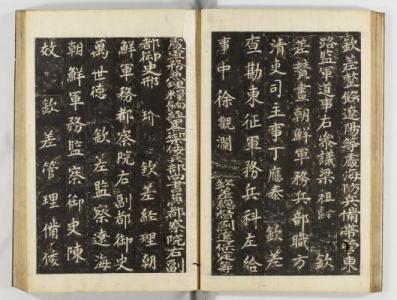 欽差整飭遼陽等處海防兵備帶管東
路監軍道事右參議梁祖齡 欽
差贊畫朝鮮軍務兵部職方
清吏司主事丁應泰 欽差
查勘東征軍務兵科左給
事中徐觀瀾 欽差經督
都御史邢 玠 欽差經理朝
鮮軍務都察院右副都御史
萬世德 欽差監察遼海
朝鮮軍務監察御史陳
效 欽差管理備倭